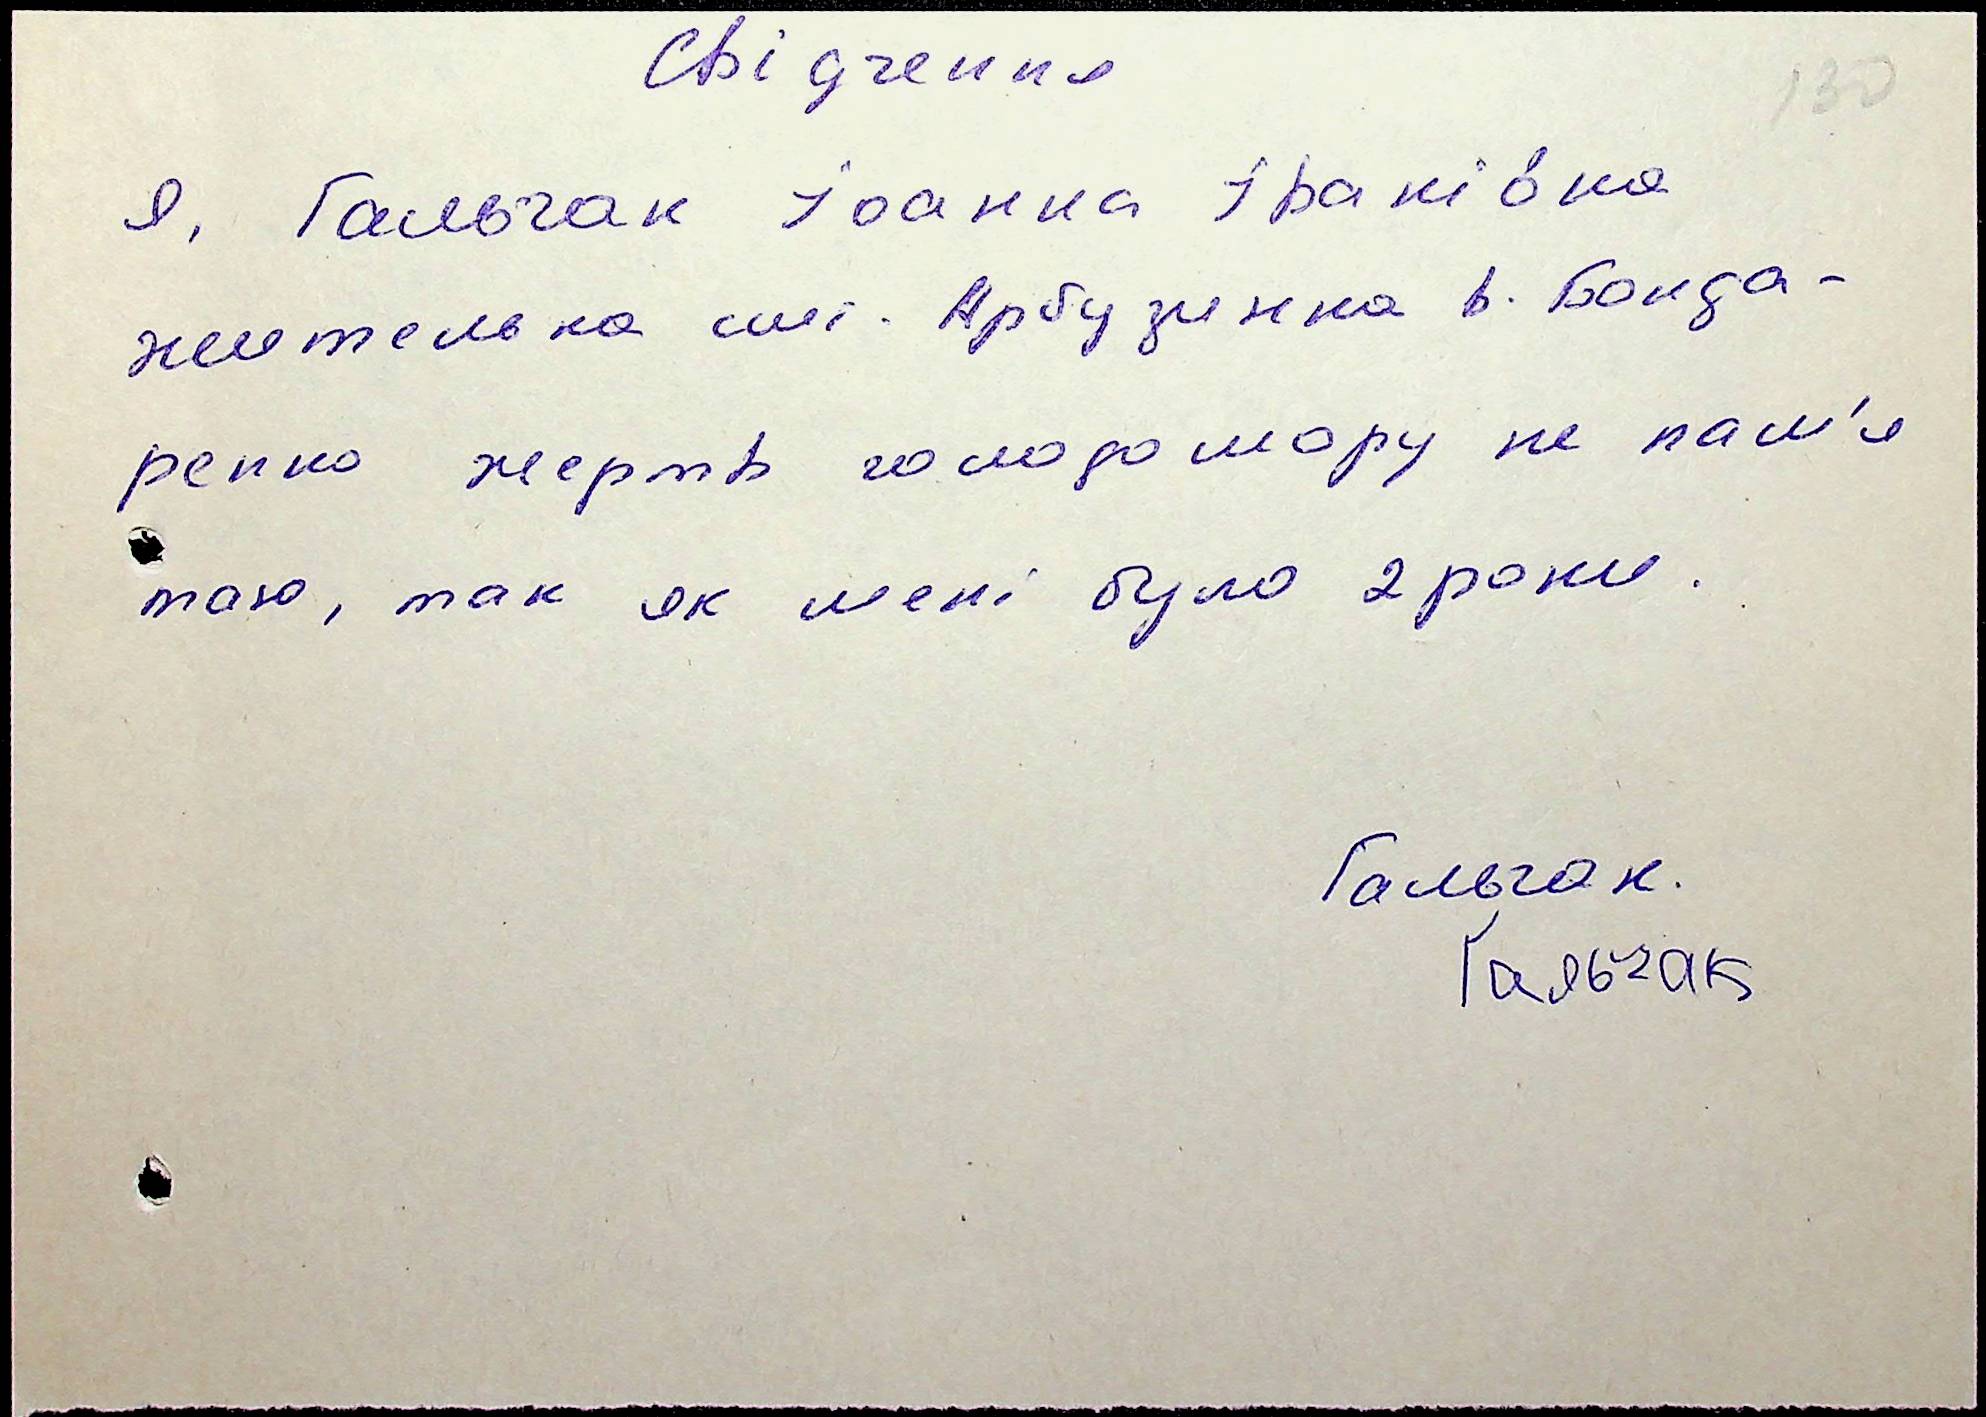 Свідчення
130
Я, Гальчак Іоанна Іванівна
жителька смт. Арбузинка в. Бонда-
ренко жертв голодомору не пам'я
таю, так як мені було 2 роки.
Гальчак.
Гальчак